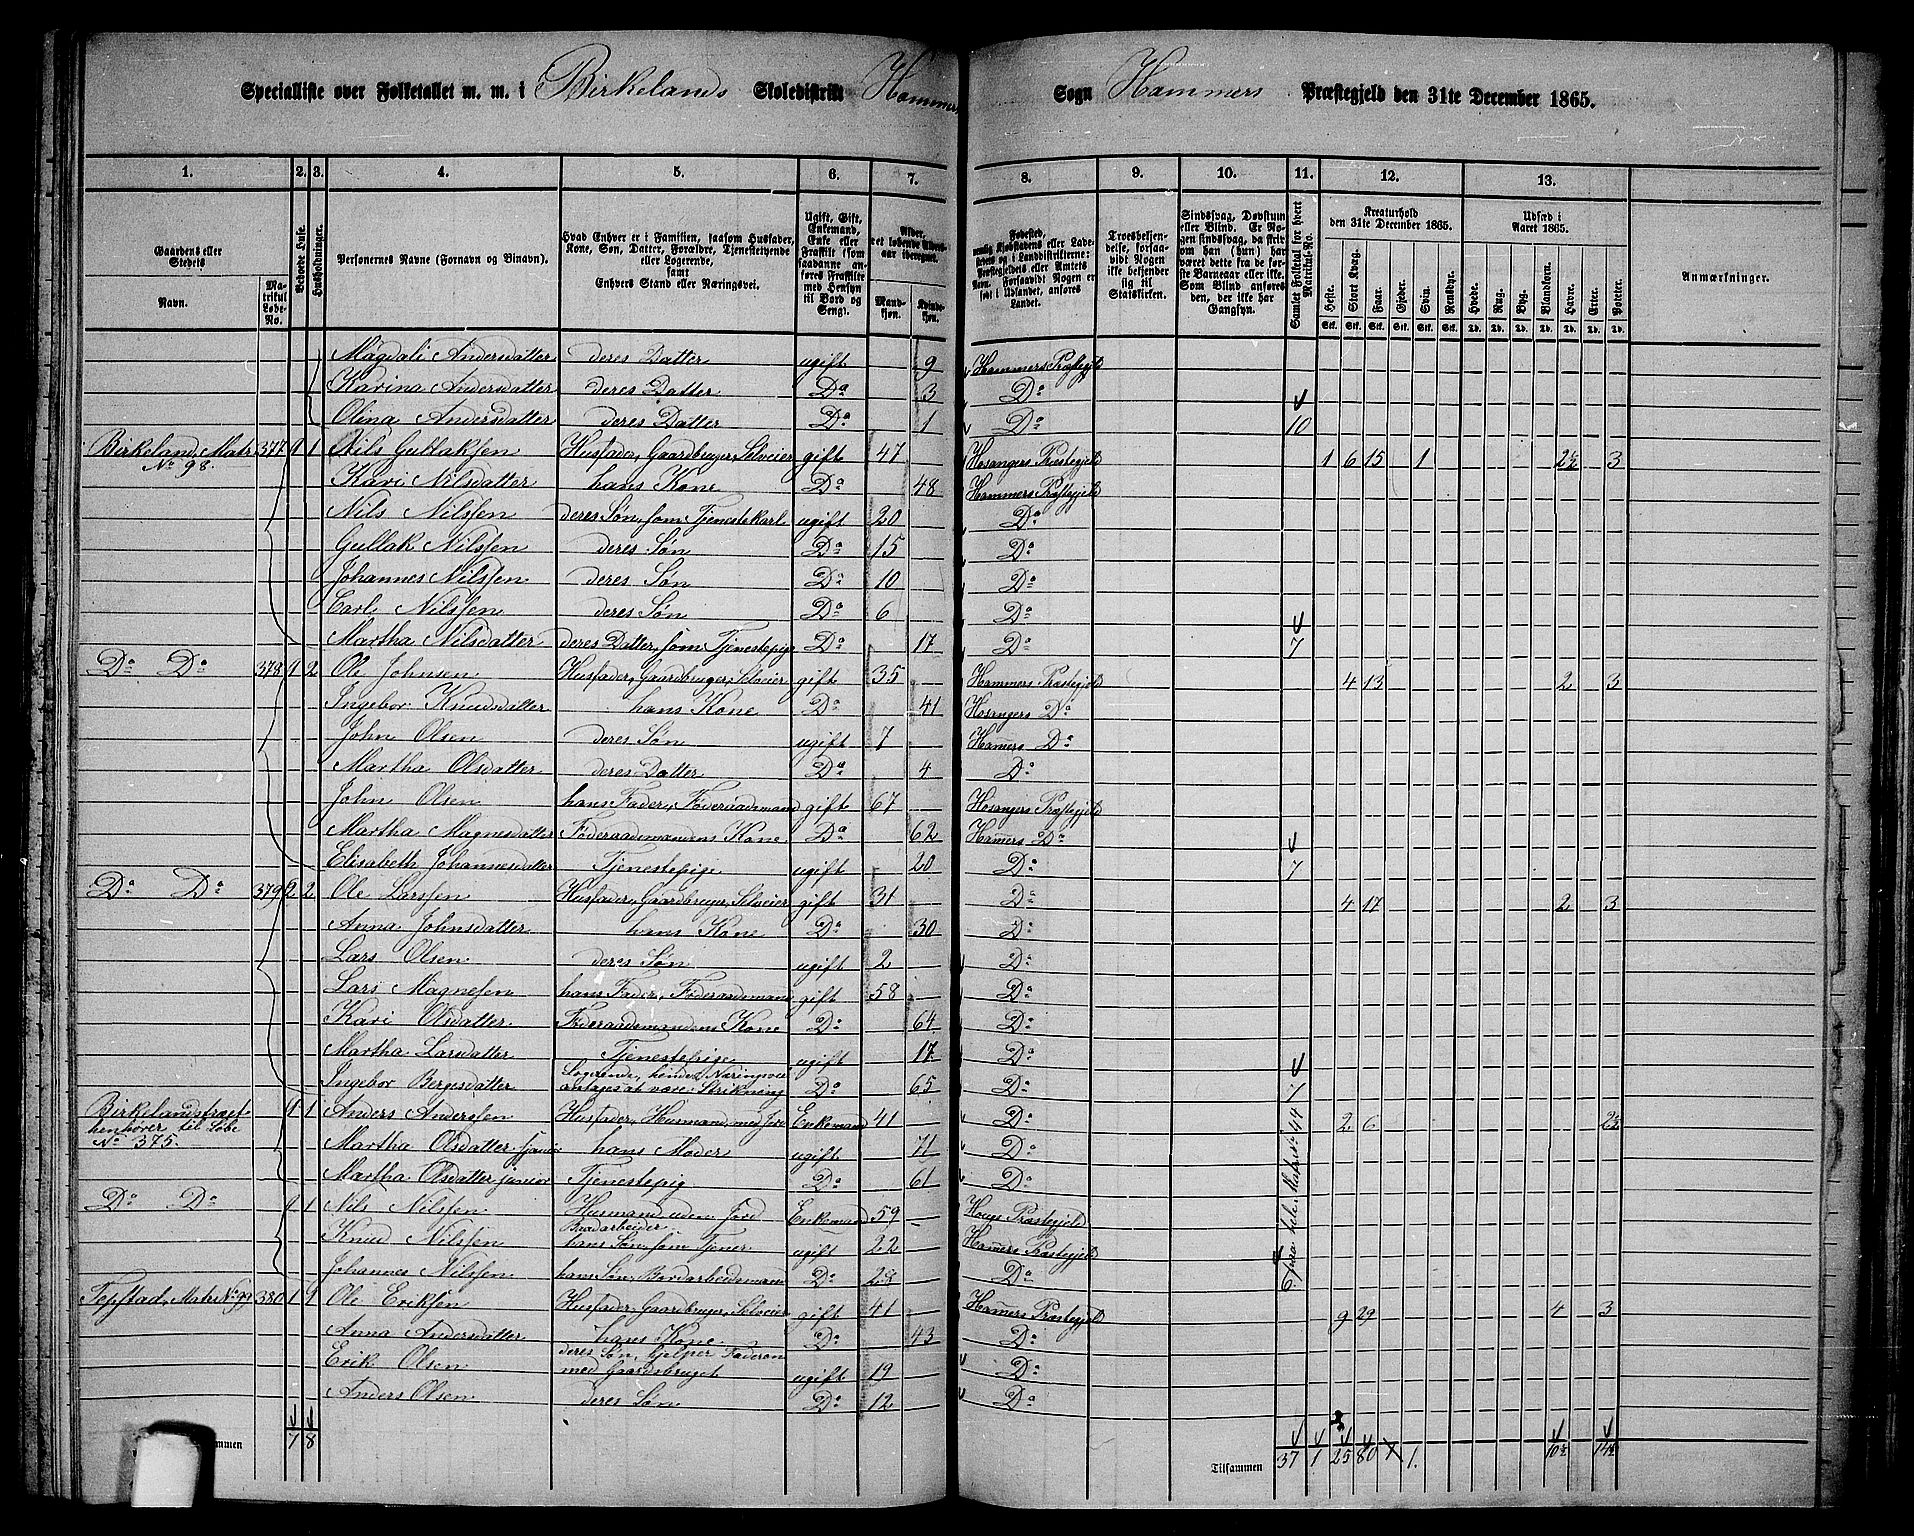 Specialliste over Folketallet m. m. i Birkelands Skoledistrikt Hammers Sogn Hammers Præstegjeld den 31te December 1865.
1. 2. 3. 4. 5. 6. 7. 8. 9. 10. 11. 12. 13.
Gaardens eller Stedets Navn. Matrikul Løbe-No. Beboede Huse. Husholdninger. Personernes Navne (Fornavn og Binavn). Hvad Enhver er i Familien, saasom Husfader, Kone, Søn, Datter, Forældre, Tjenestetyende eller Logerende, samt Enhvers Stand eller Næringsvei. Ugift, Gift, Enkemand, Enke eller Fraskilt (som saadanne anføres Fraskilte med Hensyn til Bord og Seng). Alder, det løbende Aldersaar iberegnet. Mandkjøn. Kvindekjøn.
Troesbekjendelse, forsaavidt Nogen ikke bekjender sig til Statskirken. Sindssvag, Døvstum eller Blind. Er Nogen sindssvag, da skriv om han (hun) har været dette fra de første Barneaar eller ikke. Som Blind anføres den, der ikke har Gangsyn. Samlet Folketal for hvert Matrikul-No. Kreaturhold den 31te December 1865. Heste. Stort Kvæg. Faar. Gjeder. Svin. Rensdyr. Udsæd i Aaret 1865. Hvede. Rug. Byg. Blandkorn. Havre. Erter. Poteter. Anmærkninger.
Magdali Andersdatter deres Datter ugift 9 Hammers Præstegjeld
Karina Andersdatter deres Datter Do 3 Do
Olina Andersdatter deres Datter Do 1 Do 10
Birkeland, Matr. No 98. 377 1 1 Nils Gullaksen Husfader, Gaardbruger, Selveier gift 47 Hosangers Præstegjeld 1 6 15 1 2½ 3
Kari Nilsdatter hans Kone Do 48 Hammers Præstegjeld
Nils Nilssen deres Søn, som Tjenestekarl ugift 20 Do
Gullak Nilssen deres Søn Do 15 Do
Johannes Nilssen deres Søn Do 10 Do
Carl Nilssen deres Søn Do 6 Do
Martha Nilsdatter deres Datter, som Tjenestepige Do 17 Do 7
Do Do 378 1 2 Ole Johnsen Husfader, Gaardbruger, Selveier gift 35 Hammers Præstegjeld 4 13 2 3
Ingebor Knudsdatter hans Kone Do 41 Hosangers Do
John Olsen deres Søn ugift 7 Hamers Do
Martha Olsdatter deres Datter Do 4 Do
John Olsen hans Fader, Føderaadsmand gift 67 Hosangers Præstegjeld
Martha Magnesdatter Føderaadsmandens Kone Do 62 Hamers Do
Elisabeth Johannesdatter Tjenestepige ugift 20 Do 7
Do Do 379 2 2 Ole Larssen Husfader, Gaardbruger, Selveier gift 31 Do 4 17 2 3
Anna Johnsdatter hans Kone Do 30 Do
Lars Olsen deres Søn ugift 2 Do
Lars Magnesen hans Fader, Føderaadsmand gift 58 Do
Kari Olsdatter Føderaadsmandens Kone Do 64 Do
Martha Larsdatter Tjenestepige ugift 17 Do
Ingebor Bergesdatter Logerende, hendes Næringsvei antages at være: Strikning Do 65 Do 7
Birkelandstræet henhører til Løbe No 375. 1 1 Anders Anderssen Husfader, Husmand med Jord Enkemand 41 Do 2 6 2½
Martha Olsdatter hans Moder ugift 71 Do
Martha Olsdatter junior Tjenestepig Do 61 Do
Do Do 1 1 Nils Nilssen Husmand uden Jord Enkemand 59 Hougs Præstegjeld
Knud Nilssen hans Søn, som Tjener ugift 22 Hamers Præstegjeld
Johannes Nilssen hans Søn, Bordarbeidsmand Do Do
Tepstad, Matr No 99 380 1 1 Ole Eriksen Husfader, Gaardbruger, Selveier gift 41 Hamers Præstegjeld 9 29 4 3
Anna Andersdatter hans Kone Do 43 Do
Erik Olsen deres Søn, hjelper Faderen med Gaardsbruget ugift 19 Do
Anders Olsen deres Søn Do 12 Do
7 8 Tilsammen 37 1 25 80 1. 10½ 14½